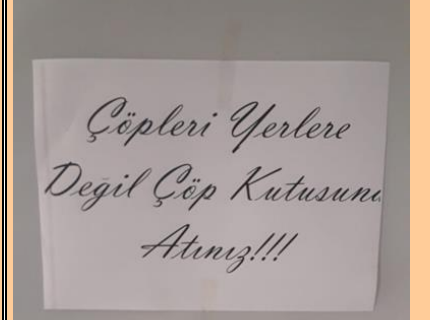 Çöpleri Yerlere
Değil Çöp Kutusuna
Atınız!!!